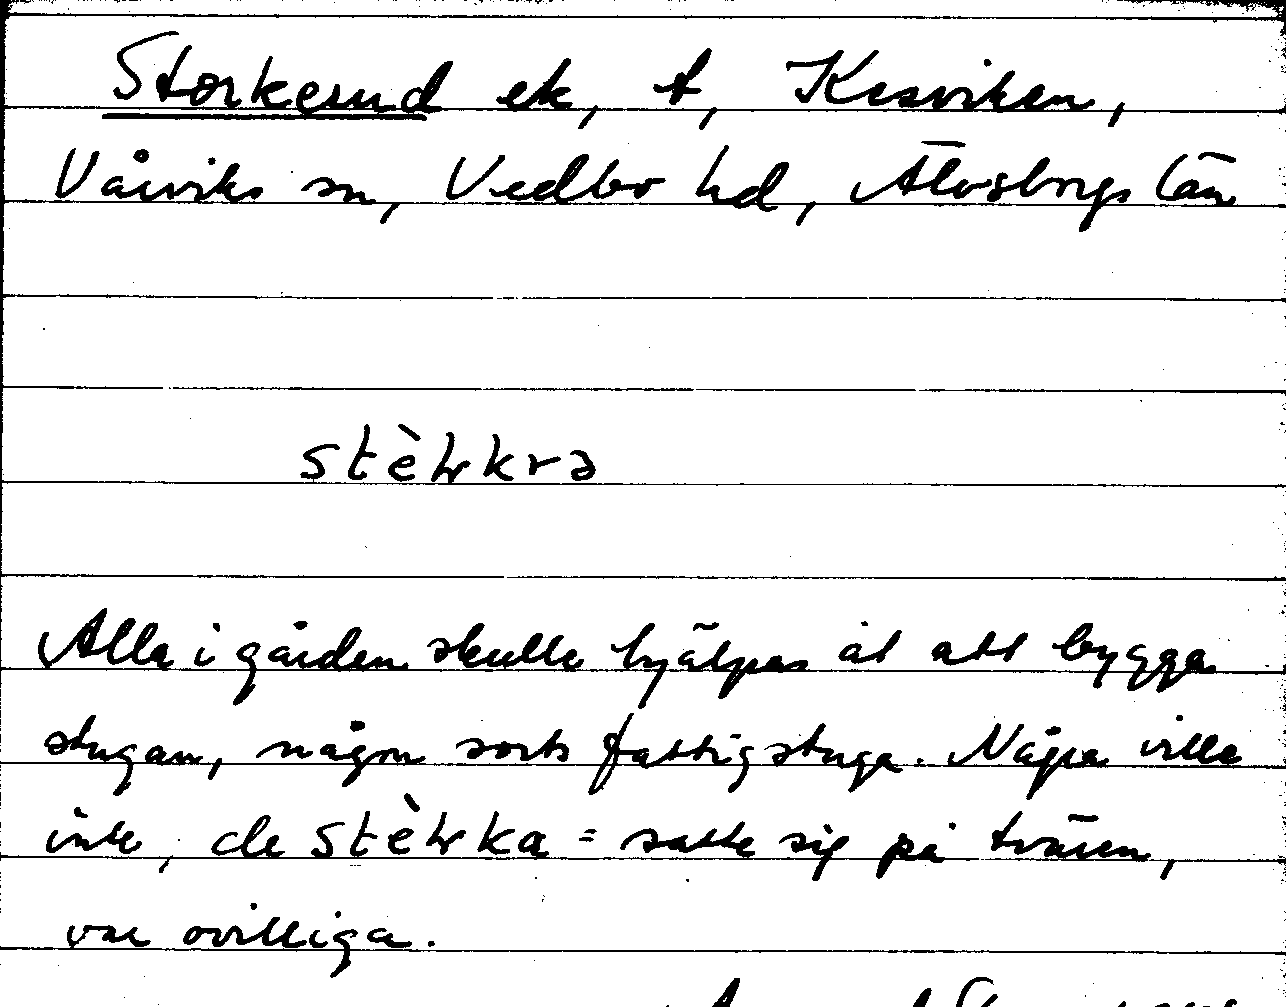 Storkerud ek, t, Kesviken,
Vårviks sn, Vedbo hd, Älvsborgs län
stèkrə
Alla i gården skulle hjälpas åt att bygga
stugan, någon sorts fattigstuga. Några ville
inte, de stèka = satte sig på tvären,
var ovilliga.